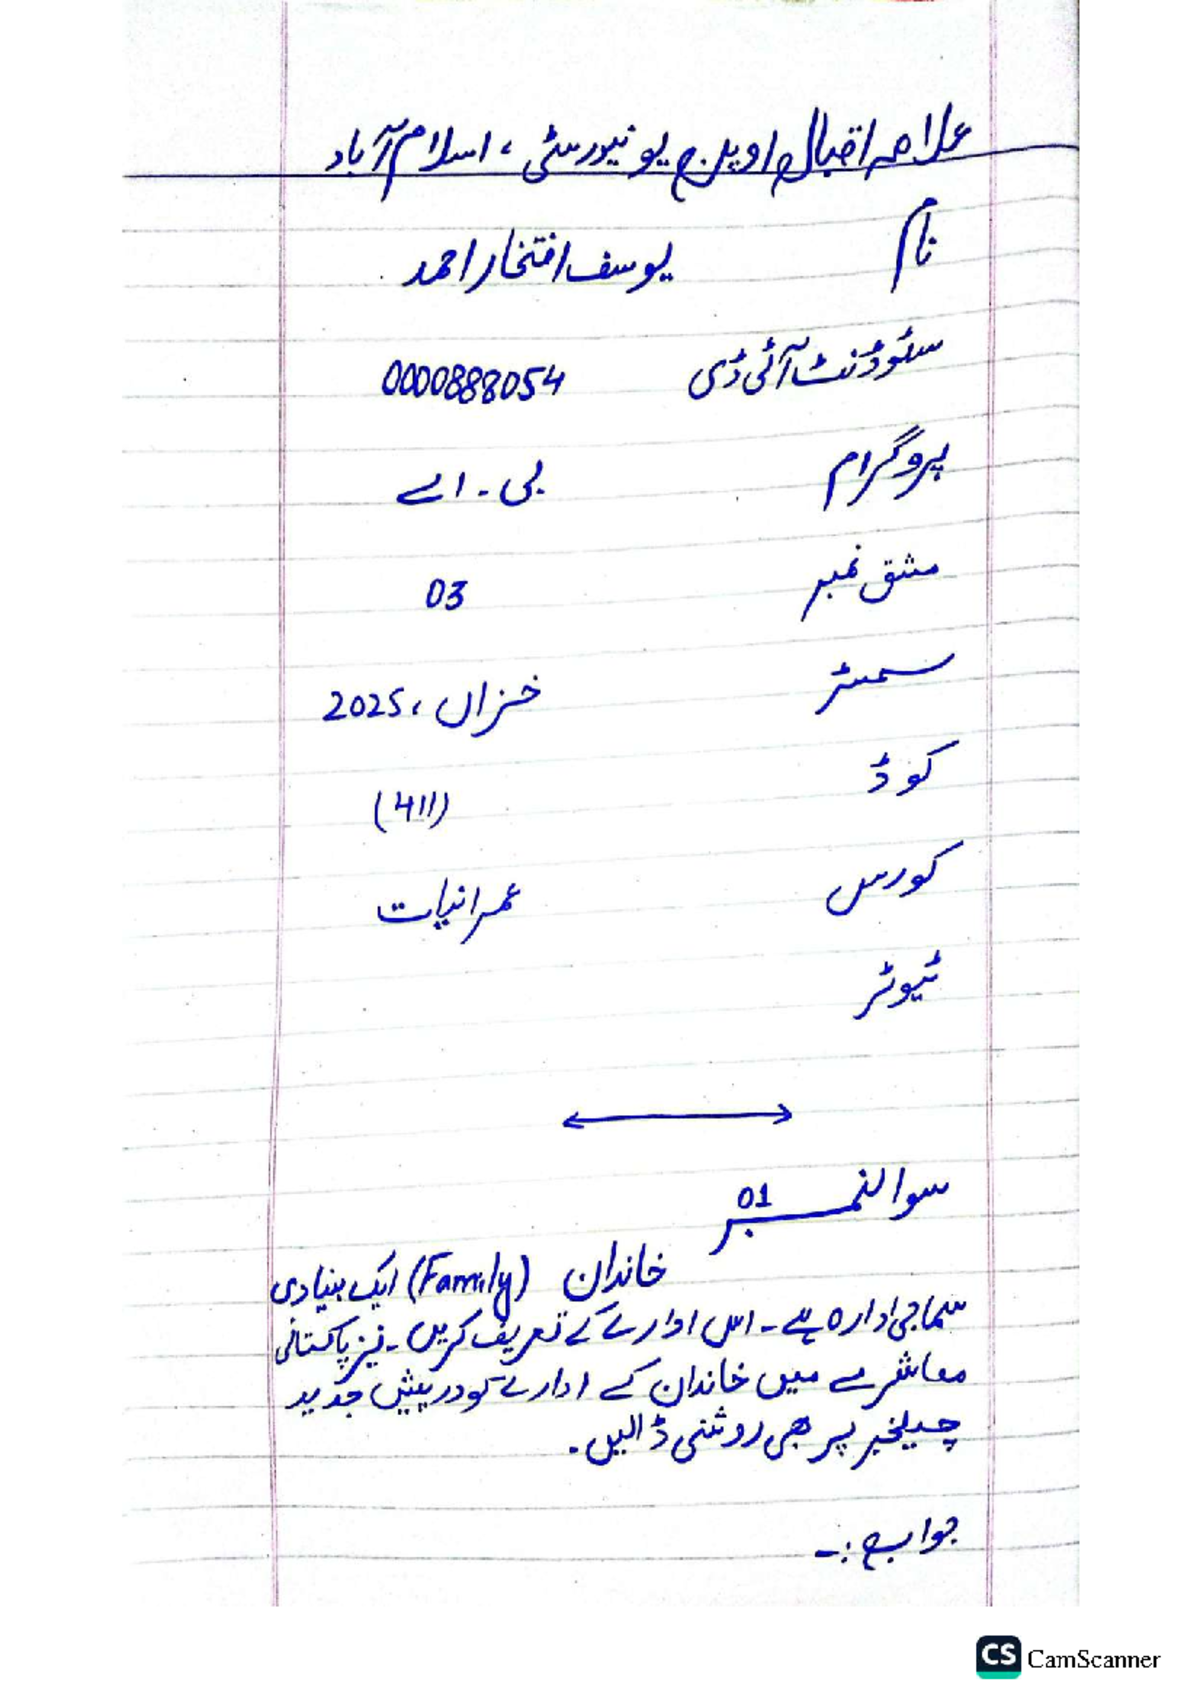 علامہ اقبال اوپن یونیورسٹی، اسلام آباد
نام یوسف افتخار احمد
سٹوڈنٹ آئی ڈی 0000888054
پروگرام بی۔اے
مشق نمبر 03
سمسٹر خزاں، 2025
کوڈ (411)
کورس عمرانیات
ٹیوٹر
سوالنمبر 01
خاندان (Family) ایک بنیادی
سماجی ادارہ ہے۔ اس ادارے کے تعریف کریں۔ نیز پاکستانی
معاشرے میں خاندان کے ادارے کو درپیش جدید
چیلنجز پر بھی روشنی ڈالیں۔
جواب:۔
CS CamScanner